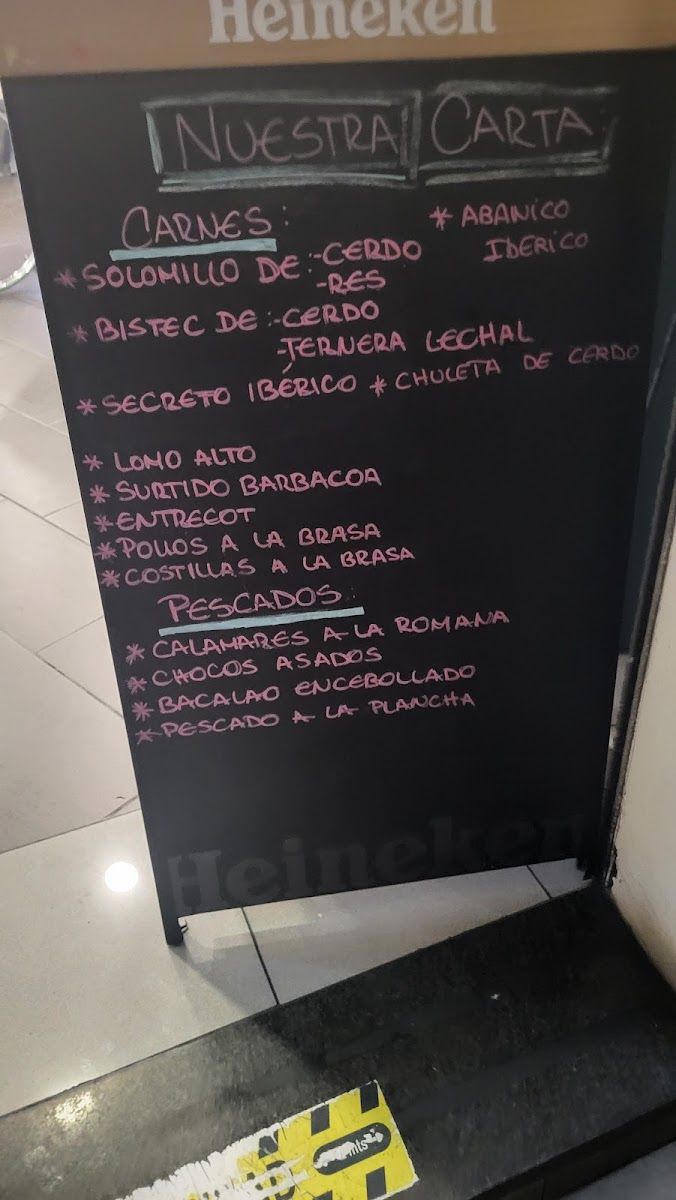 Heineken
NUESTRA CARTA
CARNES:
* ABANICO
IBERICO
* SOLOMILLO DE :-CERDO
-RES
* BISTEC DE :-CERDO
-TERNERA LECHAL
* SECRETO IBÉRICO * CHULETA DE CERDO
* LOMO ALTO
* SURTIDO BARBACOA
* ENTRECOT
* POLLOS A LA BRASA
* COSTILLAS A LA BRASA
PESCADOS:
* CALAMARES A LA ROMANA
* CHOCOS ASADOS
* BACALAO ENCEBOLLADO
* PESCADO A LA PLANCHA
Heineken